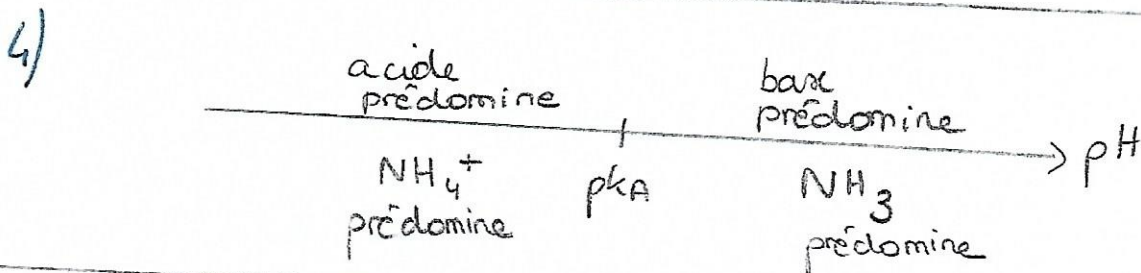 4)
acide
prédomine
base
prédomine
pH
NH₄⁺
prédomine
pKA
NH₃
prédomine